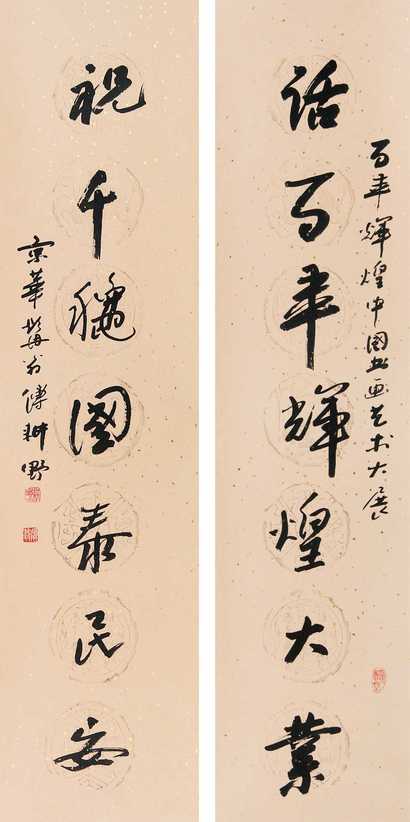 百年辉煌中国书画艺术大展
话百年辉煌大业
祝千穐國泰民安
京華髯翁傅耕野